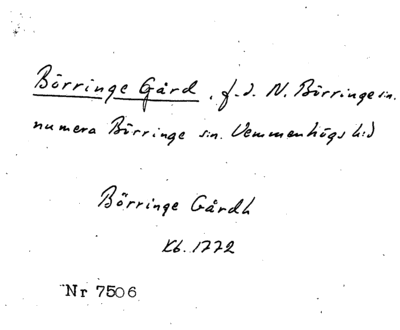 Börringe Gård, f.d. N. Börringe sn.
numera Börringe sn. Vemmenhögs hd
Börringe Gårdh
Kb. 1772
Nr 7506